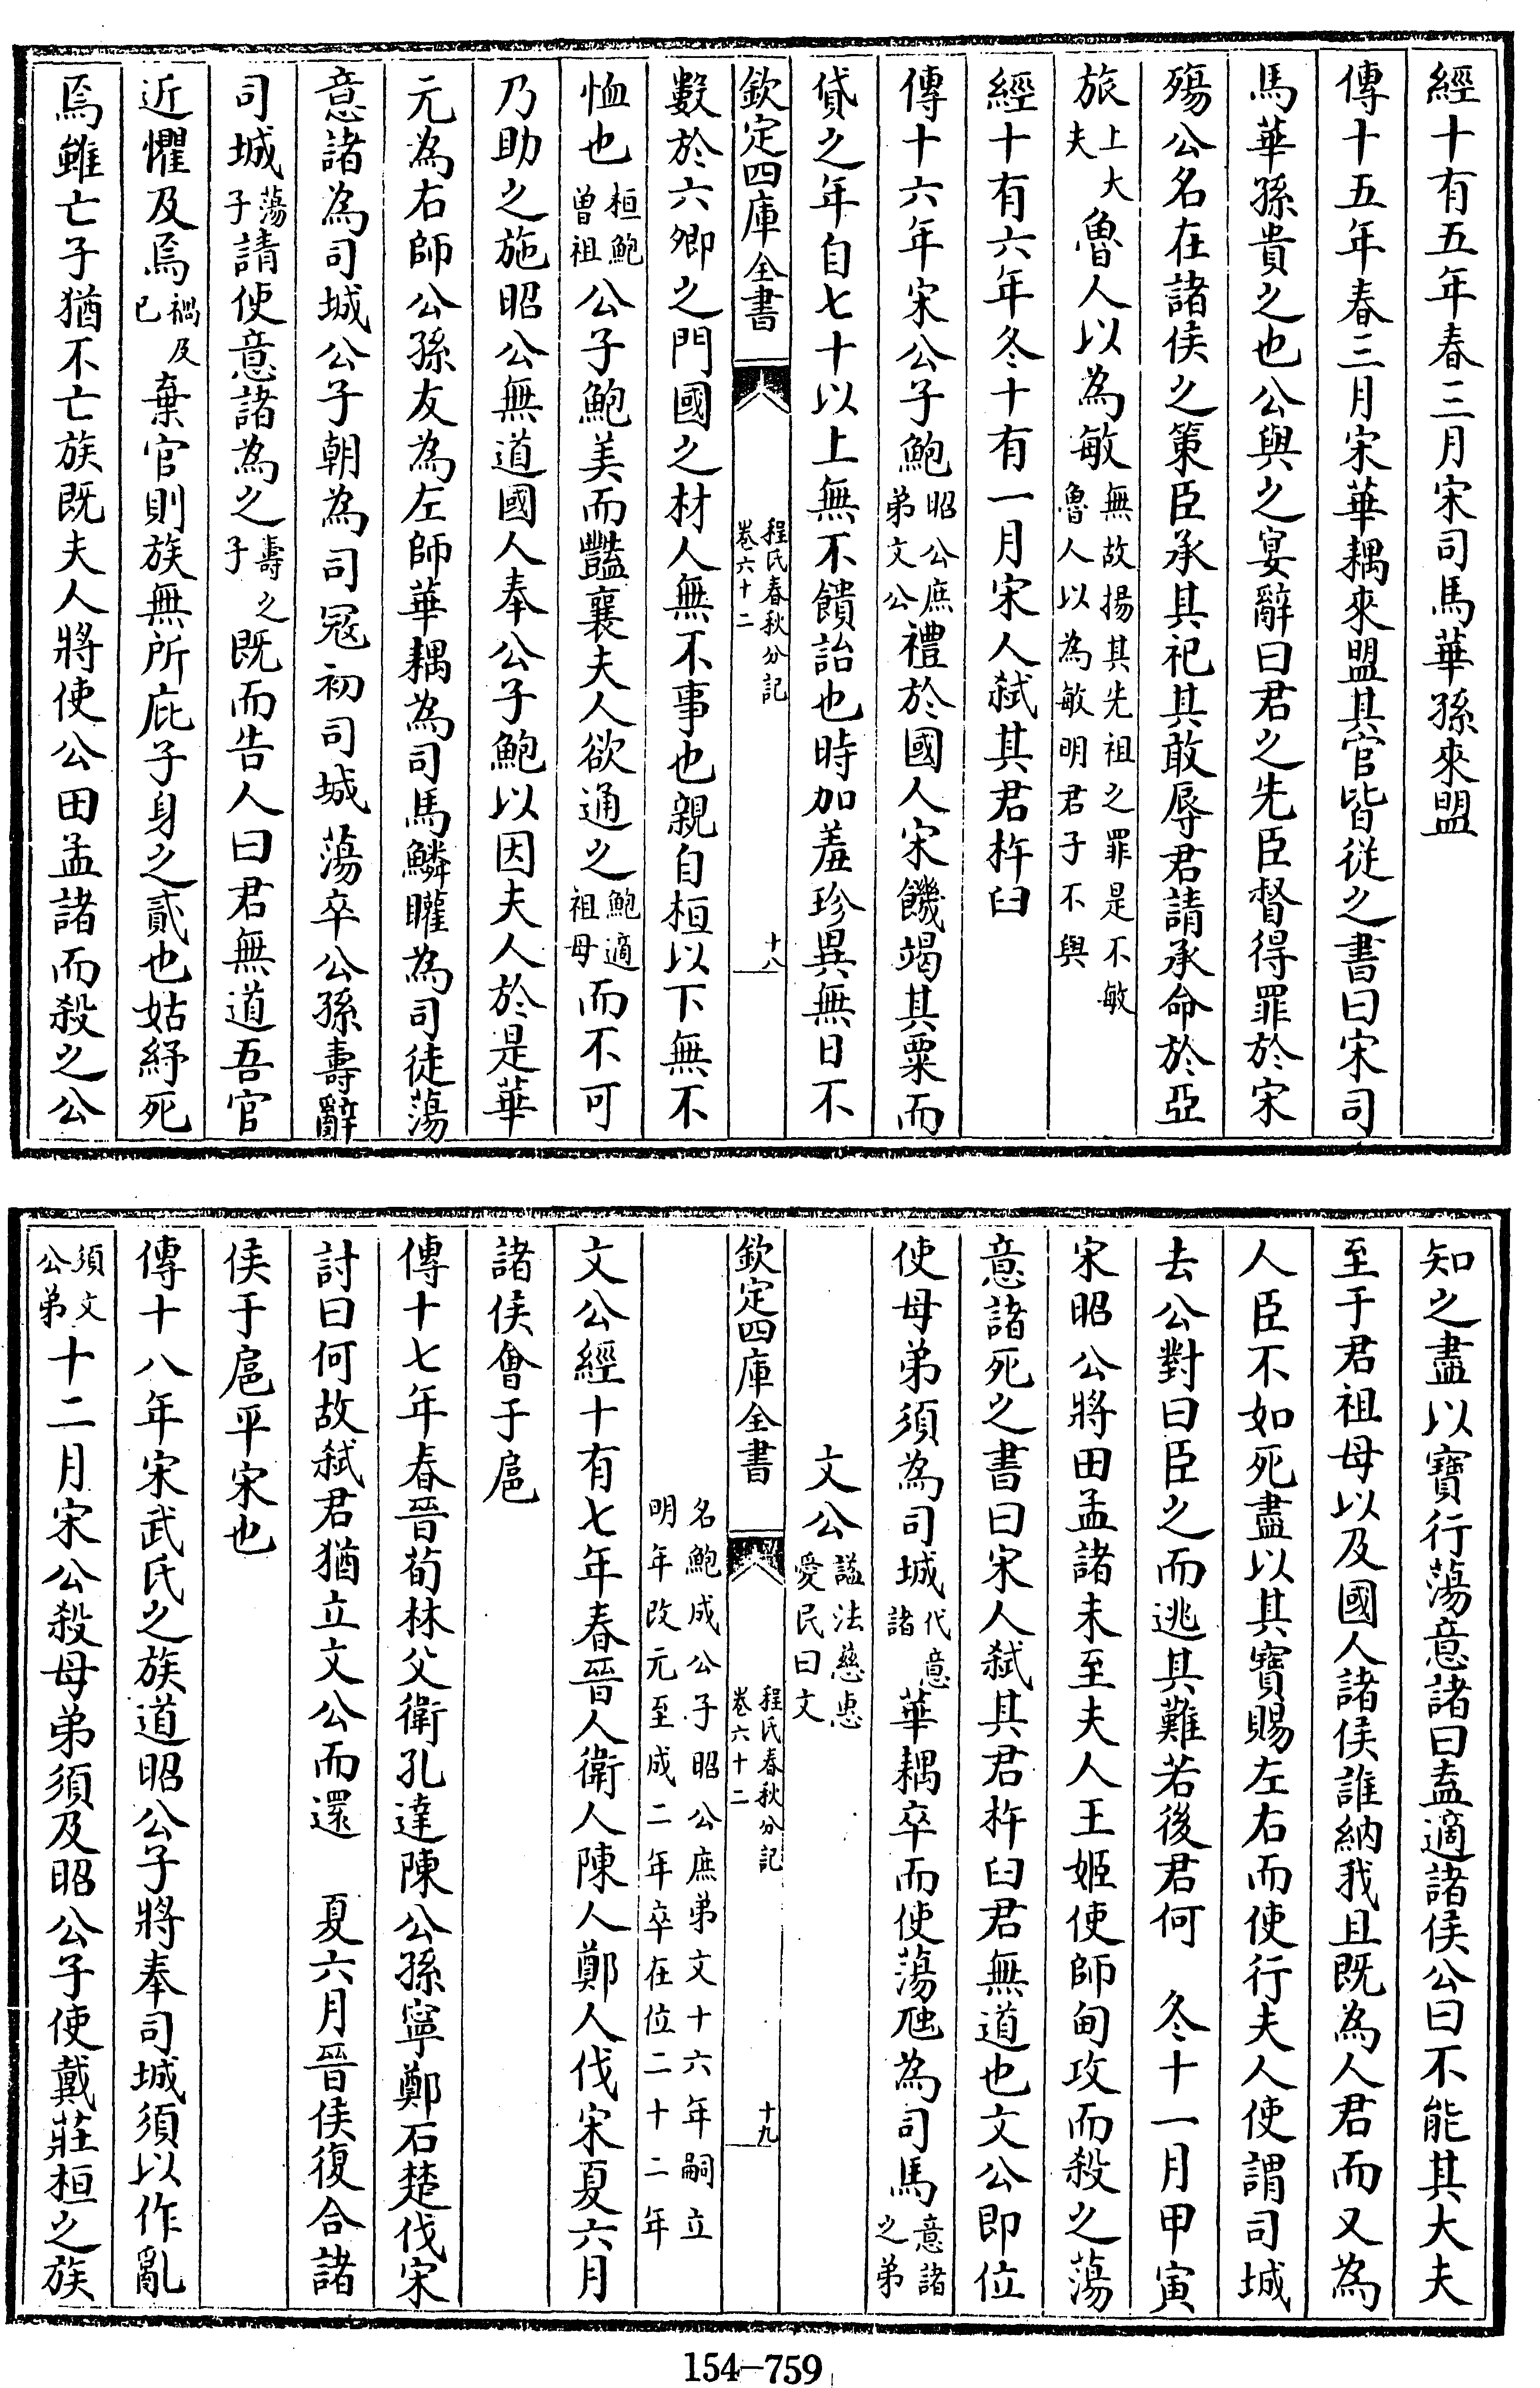 經十有五年春三月宋司馬華孫來盟
傳十五年春三月宋華耦來盟其官皆從之書曰宋司
馬華孫貴之也公與之宴辭曰君之先臣督得罪於宋
殤公名在諸侯之策臣承其祀其敢辱君請承命於亞
旅上大夫魯人以為敏無故揚其先祖之罪是不敏魯人以為敏明君子不與
經十有六年冬十有一月宋人弑其君杵臼
傳十六年宋公子鮑昭公庶弟文公禮於國人宋饑竭其粟而
貸之年自七十以上無不饋詒也時加羞珍異無日不
欽定四庫全書 程氏春秋分記卷六十二 十八
數於六卿之門國之材人無不事也親自桓以下無不
恤也桓鮑曾祖公子鮑美而豔襄夫人欲通之鮑適祖母而不可
乃助之施昭公無道國人奉公子鮑以因夫人於是華
元為右師公孫友為左師華耦為司馬鱗矔為司徒蕩
意諸為司城公子朝為司冦初司城蕩卒公孫壽辭
司城蕩子請使意諸為之壽之子既而告人曰君無道吾官
近懼及焉禍及已棄官則族無所庇子身之貳也姑紓死
焉雖亡子猶不亡族既夫人將使公田孟諸而殺之公
知之盡以寶行蕩意諸曰盍適諸侯公曰不能其大夫
至于君祖母以及國人諸侯誰納我且既為人君而又為
人臣不如死盡以其寶賜左右而使行夫人使謂司城
去公對曰臣之而逃其難若後君何 冬十一月甲寅
宋昭公將田孟諸未至夫人王姬使師甸攻而殺之蕩
意諸死之書曰宋人弑其君杵臼君無道也文公即位
使母弟須為司城代意諸華耦卒而使蕩虺為司馬意諸之弟
文公諡法慈惠愛民曰文
欽定四庫全書 程氏春秋分記卷六十二 十九
名鮑成公子昭公庶弟文十六年嗣立明年改元至成二年卒在位二十二年
文公經十有七年春晉人衛人陳人鄭人伐宋夏六月
諸侯會于扈
傳十七年春晉荀林父衛孔達陳公孫寧鄭石楚伐宋
討曰何故弑君猶立文公而還 夏六月晉侯復合諸
侯于扈平宋也
傳十八年宋武氏之族道昭公子將奉司城須以作亂
須文公弟十二月宋公殺母弟須及昭公子使戴莊桓之族
154-759